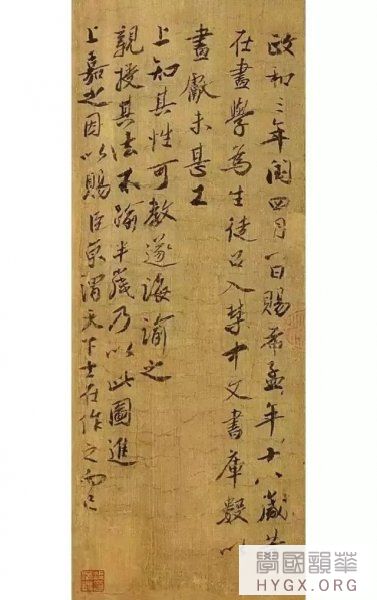 政和三年閏四月一日賜希孟年十八歲昔
在畫學為生徒召入禁中文書庫數以
畫獻未甚工
上知其性可教遂誨諭之
親授其法不踰半歲乃以此圖進
上嘉之因以賜臣京謂天下士在作之而已
學國韻華
HYGX.ORG